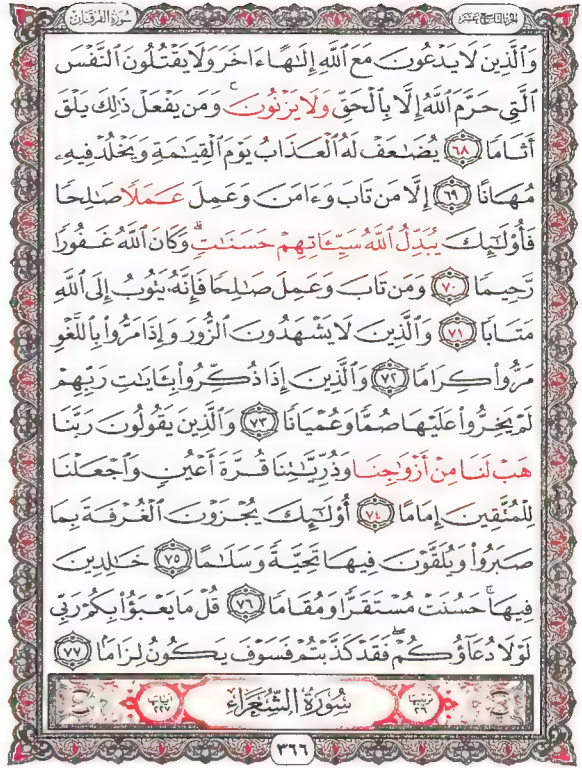 الجزء التاسع عشر
سورة الفرقان
وَٱلَّذِينَ لَا يَدْعُونَ مَعَ ٱللَّهِ إِلَٰهًا ءَاخَرَ وَلَا يَقْتُلُونَ ٱلنَّفْسَ
ٱلَّتِي حَرَّمَ ٱللَّهُ إِلَّا بِٱلْحَقِّ وَلَا يَزْنُونَ ۚ وَمَن يَفْعَلْ ذَٰلِكَ يَلْقَ
أَثَامًا ٦٨ يُضَٰعَفْ لَهُ ٱلْعَذَابُ يَوْمَ ٱلْقِيَٰمَةِ وَيَخْلُدْ فِيهِۦ
مُهَانًا ٦٩ إِلَّا مَن تَابَ وَءَامَنَ وَعَمِلَ عَمَلًا صَٰلِحًا
فَأُو۟لَٰٓئِكَ يُبَدِّلُ ٱللَّهُ سَيِّـَٔاتِهِمْ حَسَنَٰتٍ ۗ وَكَانَ ٱللَّهُ غَفُورًا
رَّحِيمًا ٧٠ وَمَن تَابَ وَعَمِلَ صَٰلِحًا فَإِنَّهُۥ يَتُوبُ إِلَى ٱللَّهِ
مَتَابًا ٧١ وَٱلَّذِينَ لَا يَشْهَدُونَ ٱلزُّورَ وَإِذَا مَرُّوا۟ بِٱللَّغْوِ
مَرُّوا۟ كِرَامًا ٧٢ وَٱلَّذِينَ إِذَا ذُكِّرُوا۟ بِـَٔايَٰتِ رَبِّهِمْ
لَمْ يَخِرُّوا۟ عَلَيْهَا صُمًّا وَعُمْيَانًا ٧٣ وَٱلَّذِينَ يَقُولُونَ رَبَّنَا
هَبْ لَنَا مِنْ أَزْوَٰجِنَا وَذُرِّيَّٰتِنَا قُرَّةَ أَعْيُنٍ وَٱجْعَلْنَا
لِلْمُتَّقِينَ إِمَامًا ٧٤ أُو۟لَٰٓئِكَ يُجْزَوْنَ ٱلْغُرْفَةَ بِمَا
صَبَرُوا۟ وَيُلَقَّوْنَ فِيهَا تَحِيَّةً وَسَلَٰمًا ٧٥ خَٰلِدِينَ
فِيهَا ۚ حَسُنَتْ مُسْتَقَرًّا وَمُقَامًا ٧٦ قُلْ مَا يَعْبَؤُا۟ بِكُمْ رَبِّي
لَوْلَا دُعَآؤُكُمْ ۖ فَقَدْ كَذَّبْتُمْ فَسَوْفَ يَكُونُ لِزَامًا ٧٧
ترتيبها ٢٦ سُورَةُ الشُّعَرَاءِ آياتها ٢٢٧
٣٦٦